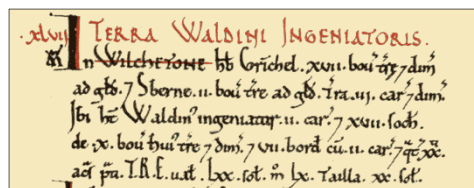 .xlvii. TERRA WALDINI INGENIATORIS.
In WILCHETONE hb̃ Grichel. xvii. bou' tr̃e ⁊ dim̃
ad gld̃. ⁊ Sberne. ii. bou' tr̃e ad gld̃. Tr̃a. vi. car' ⁊ dim̃.
Ibi hc̃ Waldin' ingeniator. ii. car'. ⁊ xvii. soch̃.
de .x. bou' hui' tr̃e ⁊ dim̃. ⁊ vii. bord̃ cũ .ii. car'. ⁊ xx.
ac̃s p̃ti. T.R.E. ual' lxx. sol'. m̊ lx. Tailla. xx. sol'.